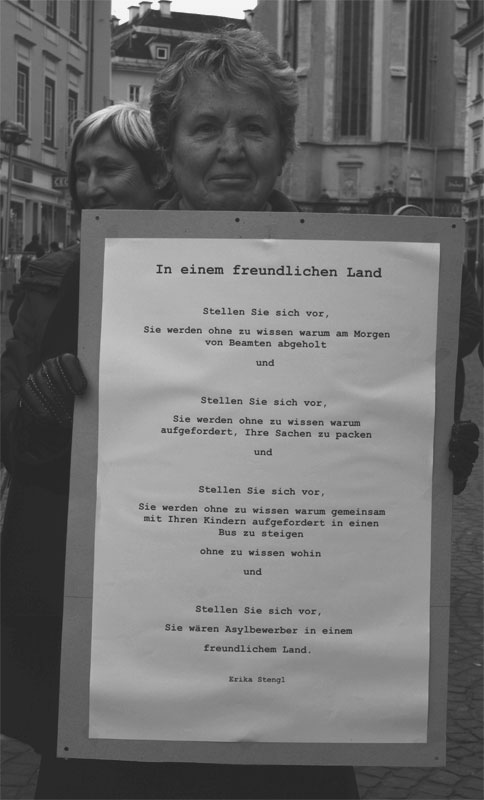 In einem freundlichen Land
Stellen Sie sich vor,
Sie werden ohne zu wissen warum am Morgen
von Beamten abgeholt
und
Stellen Sie sich vor,
Sie werden ohne zu wissen warum
aufgefordert, Ihre Sachen zu packen
und
Stellen Sie sich vor,
Sie werden ohne zu wissen warum gemeinsam
mit Ihren Kindern aufgefordert in einen
Bus zu steigen
ohne zu wissen wohin
und
Stellen Sie sich vor,
Sie wären Asylbewerber in einem
freundlichem Land.
Erika Stengl